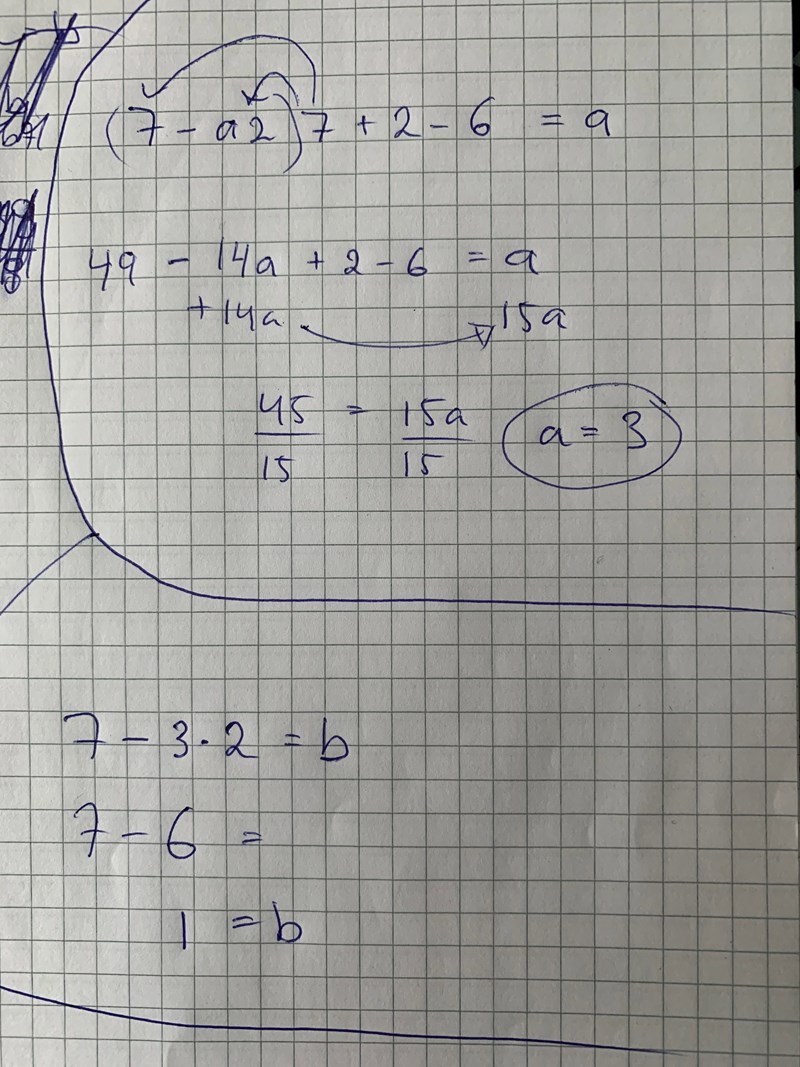 (7 - a2)7 + 2 - 6 = a
49 - 14a + 2 - 6 = a
+14a 15a
45/15 = 15a/15 a = 3
7 - 3·2 = b
7 - 6 =
1 = b